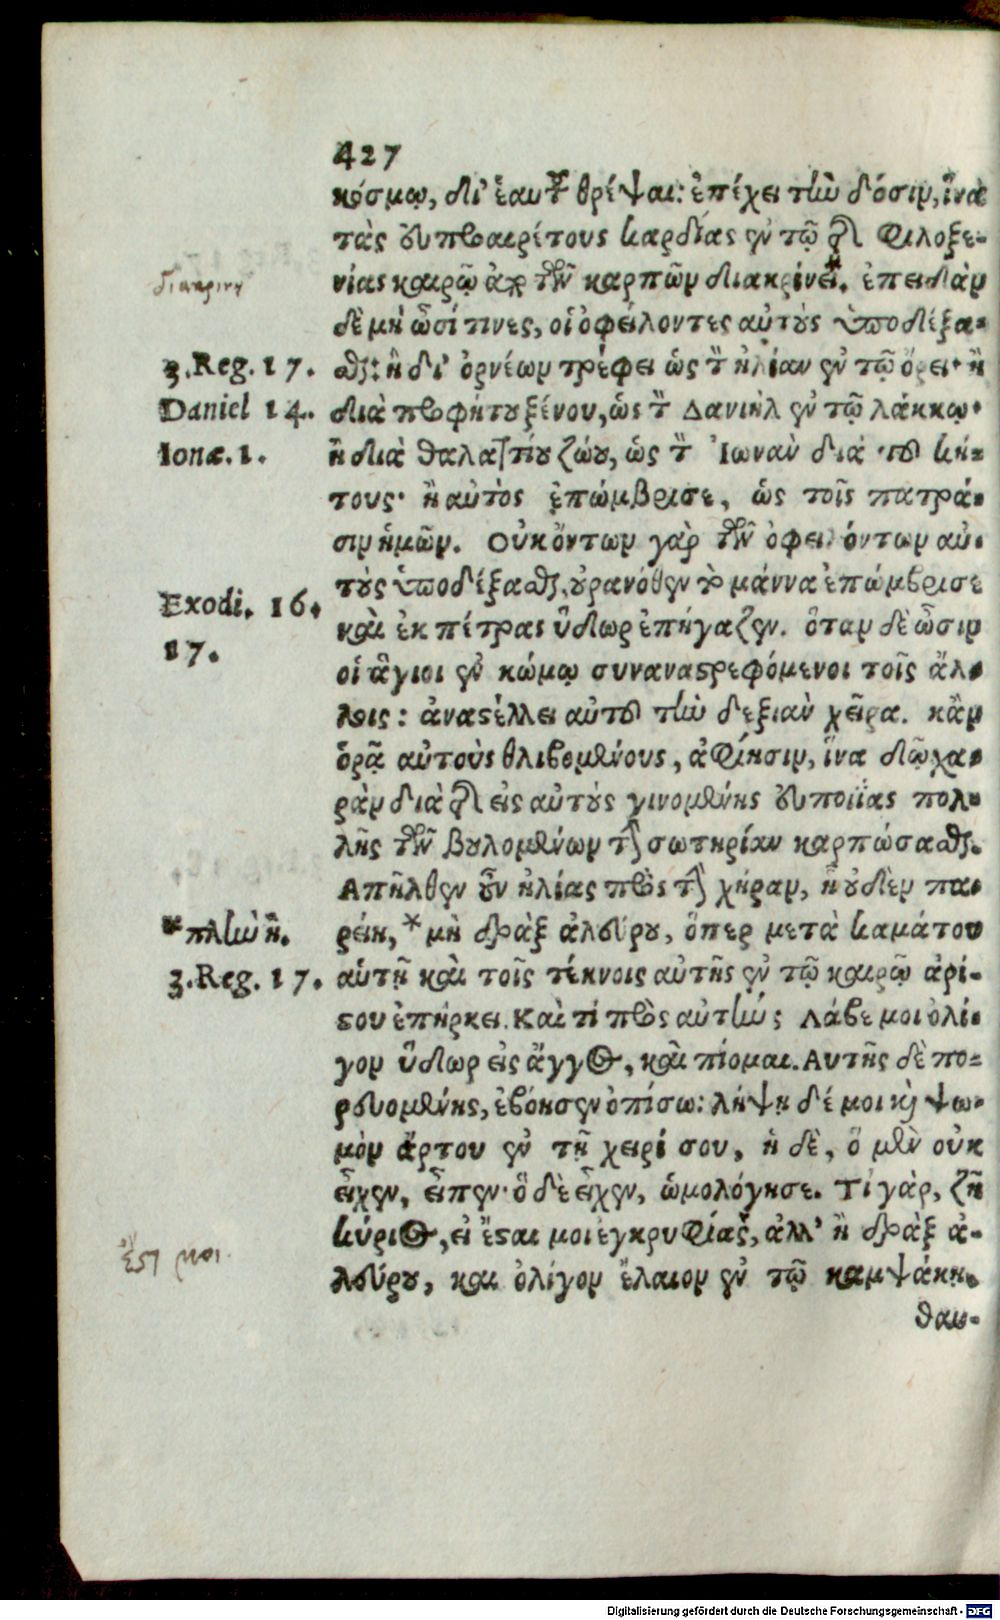 427
κόσμῳ, δι' ἑαυτοῦ θρέψαι: ἐπέχει τὴν δόσιν, ἵνα
τὰς εὐπροαιρέτους καρδίας ἐν τῷ τῆς φιλοξε-
διακρινῇ
νίας καιρῷ ἀπὸ τῶν καρπῶν διακρίνει.* ἐπειδὰν
δὲ μὴ ὦσί τινες, οἱ ὀφείλοντες αὐτοὺς ὑποδέξα-
3. Reg. 17.
σθαι: ἢ δι' ὀρνέων τρέφει ὡς τὸν ἠλίαν ἐν τῷ ὄρει· ἢ
Daniel 14.
διὰ προφήτου ξένου, ὡς τὸν Δανιὴλ ἐν τῷ λάκκῳ·
Ionæ. 1.
ἢ διὰ θαλαττίου ζώου, ὡς τὸν Ἰωνᾶν διὰ τοῦ κή-
τους· ἢ αὐτὸς ἐπώμβρισε, ὡς τοῖς πατρά-
σιν ἡμῶν. Οὐκ ὄντων γὰρ τῶν ὀφειλόντων αὐ-
τοὺς ὑποδέξασθαι, οὐρανόθεν τὸ μάννα ἐπώμβρισε
Exodi. 16.
καὶ ἐκ πέτρας ὕδωρ ἐπήγαζεν. ὅταν δὲ ὦσιν
17.
οἱ ἅγιοι ἐν κώμῳ συναναστρεφόμενοι τοῖς ἄλ-
λοις: ἀναστέλλει αὐτοῦ τὴν δεξιὰν χεῖρα. κἂν
ὁρᾷ αὐτοὺς θλιβομένους, ἀφίησιν, ἵνα δῷ χα-
ρὰν διὰ τῆς εἰς αὐτοὺς γινομένης εὐποιΐας πολ-
λῆς τῶν βουλομένων τὴν σωτηρίαν καρπώσασθαι.
Απῆλθεν οὖν ἠλίας πρὸς τὴν χήραν, ᾗ οὐδὲν πα-
*πλὴν ἢ.
ρείη, * μὴ δρὰξ ἀλεύρου, ὅπερ μετὰ καμάτου
3. Reg. 17.
αὐτῇ καὶ τοῖς τέκνοις αὐτῆς ἐν τῷ καιρῷ ἀρί-
στου ἐπήρκει. Καὶ τί πρὸς αὐτήν; Λάβε μοι ὀλί-
γον ὕδωρ εἰς ἄγγος, καὶ πίομαι. Αὐτῆς δὲ πο-
ρευομένης, ἐβόησεν ὀπίσω: λήψῃ δέ μοι καὶ ψω-
μὸν ἄρτου ἐν τῇ χειρί σου, ἡ δὲ, ὃ μὲν οὐκ
εἶχεν, εἶπεν· ὃ δὲ εἶχεν, ὡμολόγησε. Τί γὰρ, ζῆ
ἔστι μοι
κύριος, εἰ ἔσται μοι ἐγκρυφίας, ἀλλ' ἢ δρὰξ ἀ-
λεύρου, καὶ ὀλίγον ἔλαιον ἐν τῷ καμψάκῃ.
θαυ-
Digitalisierung gefördert durch die Deutsche Forschungsgemeinschaft - DFG